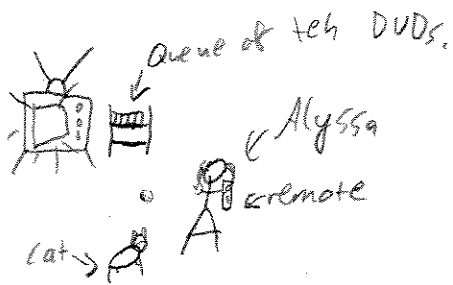 Queue of teh DVDs.
Alyssa
remote
cat